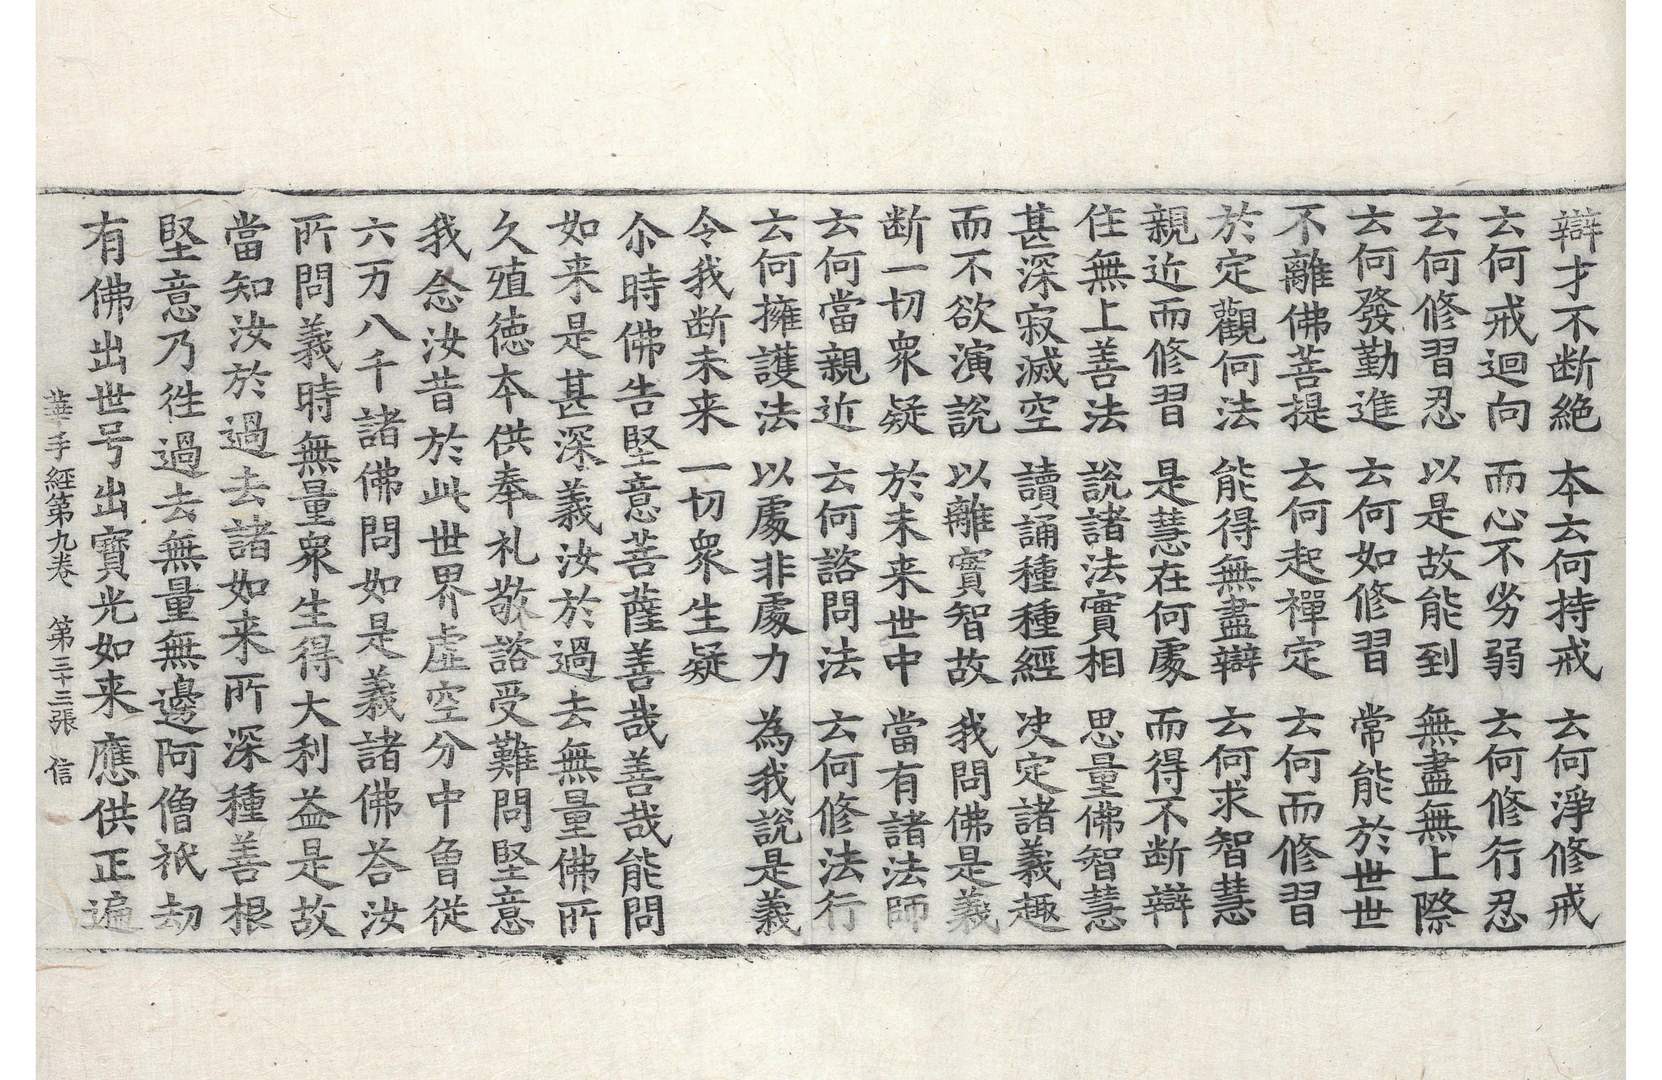 辯才不断絶　本云何持戒　云何淨修戒
云何戒迴向　而心不劣弱　云何修行忍
云何修習忍　以是故能到　無盡無上際
云何發勤進　云何如修習　常能於世世
不離佛菩提　云何起禪定　云何而修習
於定觀何法　能得無盡辯　云何求智慧
親近而修習　是慧在何處　而得不断辯
住無上善法　說諸法實相　思量佛智慧
甚深寂滅空　讀誦種種經　决定諸義趣
而不欲演說　以離實智故　我問佛是義
断一切衆疑　於未来世中　當有諸法師
云何當親近　云何諮問法　云何修法行
云何擁護法　以處非處力　為我說是義
令我断未来　一切衆生疑
尒時佛告堅意菩薩善哉善哉能問
如来是甚深義汝於過去無量佛所
久殖德本供奉礼敬諮受難問堅意
我念汝昔於此世界虛空分中曾從
六万八千諸佛問如是義諸佛荅汝
所問義時無量衆生得大利益是故
當知汝於過去諸如来所深種善根
堅意乃徃過去無量無邊阿僧祇劫
有佛出世号出寳光如来應供正遍
華手經第九卷　第三十三張　信